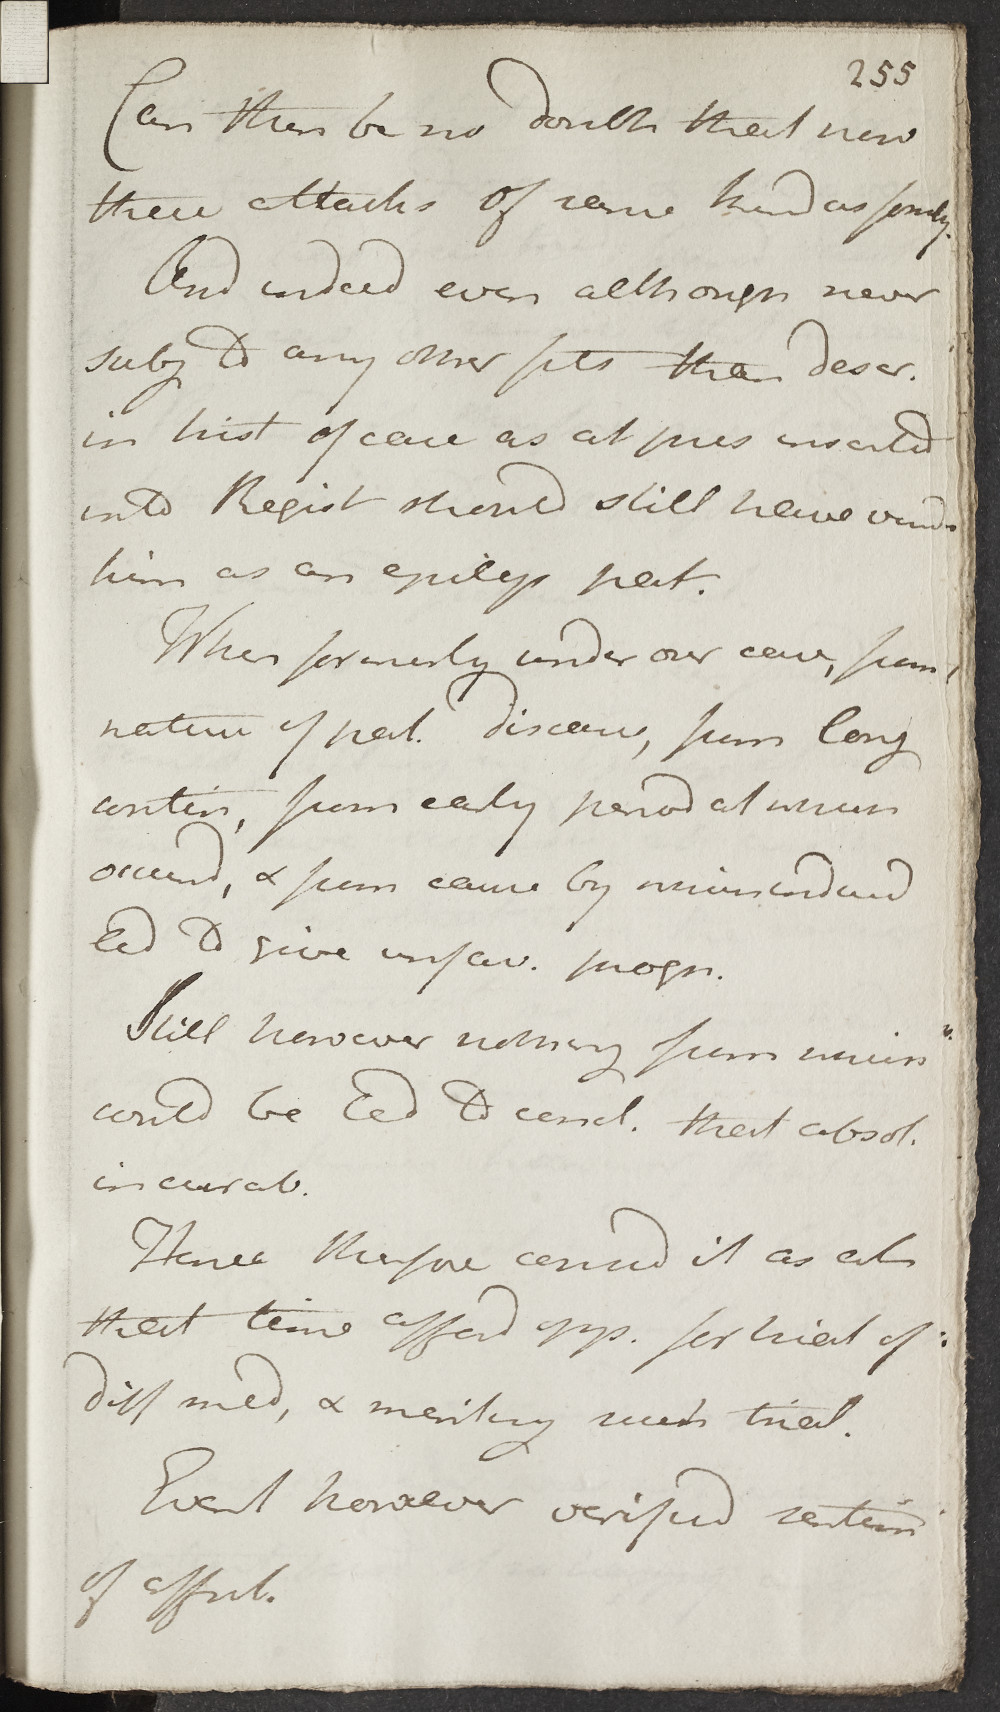 255
Can then be no doubts that now
these attacks of same kind as formly.
And indeed even although never
subj to any other fits than descr.
in hist of case as at pres inserted
into Regist should still have viewd
him as an epilep pat.
When formerly under our care, from
nature of part. disease, from long
contin, from early period at which
occurd, & from cause by which inducd
led to give unfav. progn.
Still however nothing from which
could be led to concl. that absol.
incurab.
Hence therefore considd it as at
that time affordg opp. for trial of
diff med, & meriting such trial.
Event however verified
of affect.